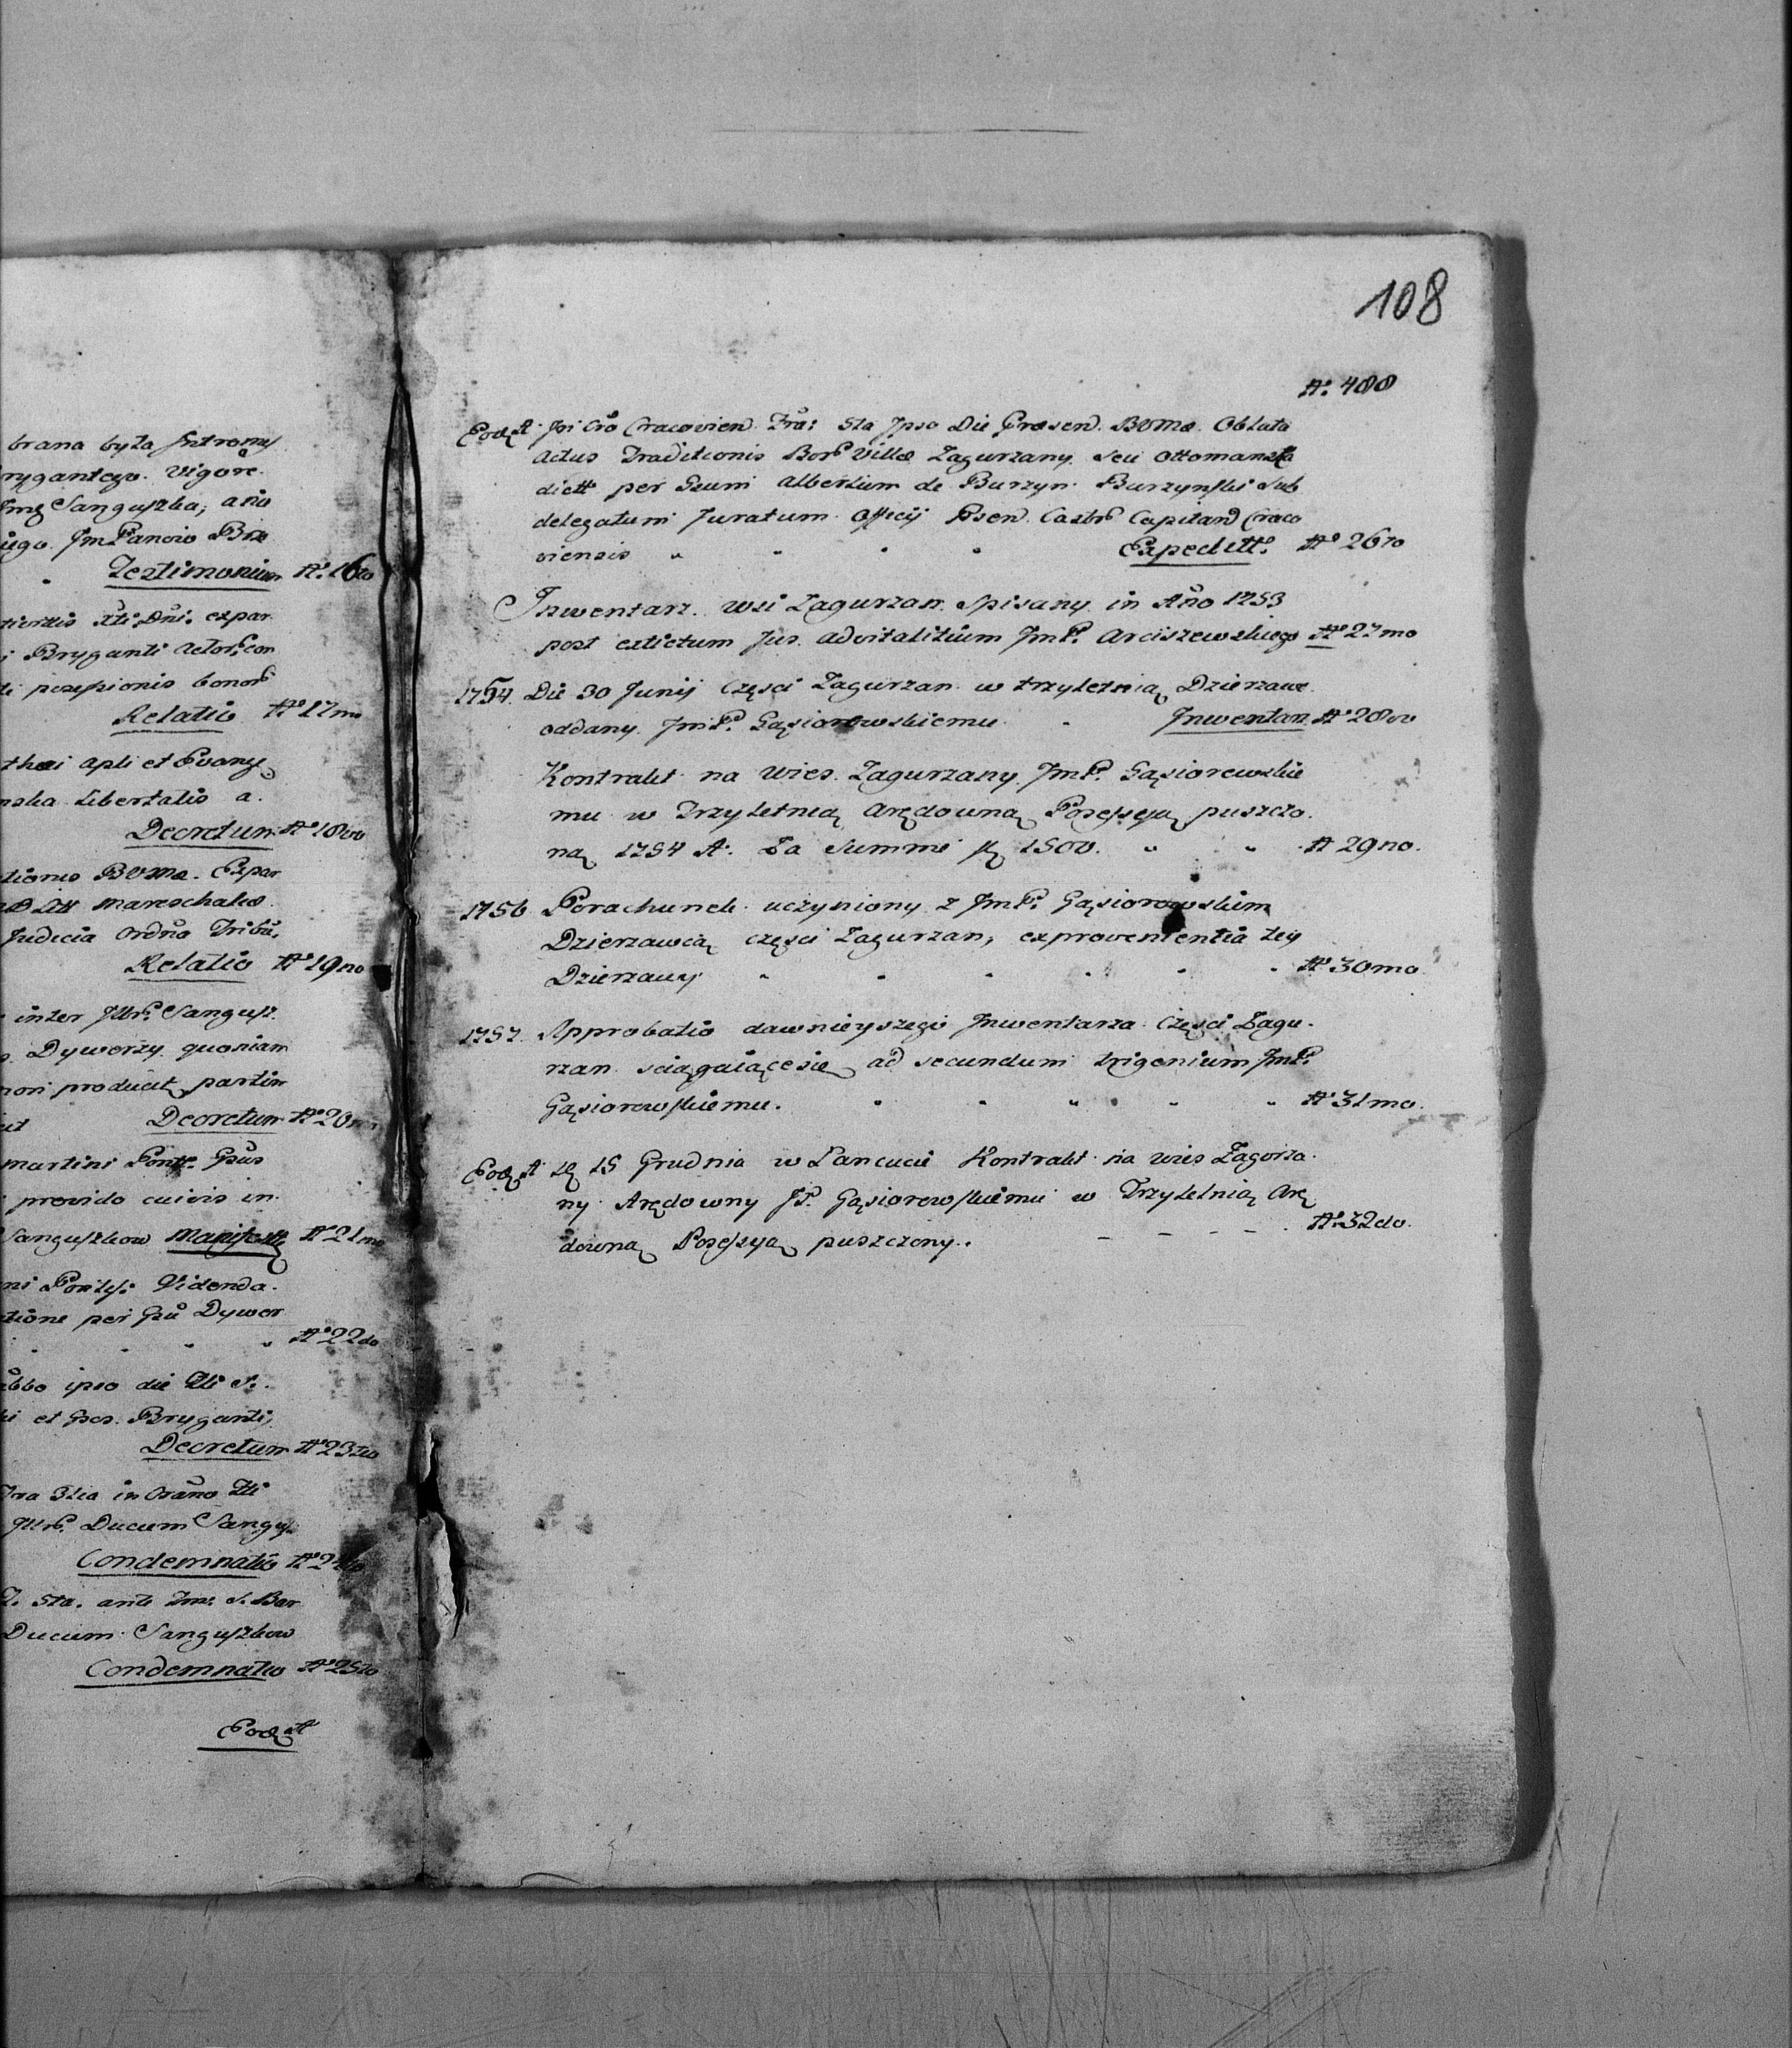 brana była Intromis
rygantego. Vigore.
Sanguszka, año
ugo. JmPanow Brx
Testimonium №. 16to
expar
Bryganti Actor. con
possessionis bonor
Relatio №17mo
thæi Apli et Evange
nska Libertatis a.
Decretum №18vo
tionis BVMæ. Expar
Mareschalco.
Judicia Ordño Tribu.
Relatio №19no
inter Sangusz.
Dywerzy quoniam
non producit partim
Decretum №20
Martini Pontif.
provido cuivis in.
Sanguszkow Manifestt №21mo
Pontif: Videnda.
tione per Dywer
№22do
ipso die
et Bryganti,
Decretum №23tio
3tia in Crãno
Ducum Sangusz
Condemnatio №24
5ta. ante S. Bar
Ducum Sanguszkow
Condemnatio №25to
Eod. A
108
№. 488
Eod. A Cracovien. 5ta Ipso Die Præsen. BVMæ. Oblata
Actus Traditionis Bor Villæ Zagurzany seu Ottomanska
dictt per Albertum de Burzyn Burzynski Sub
delegatum Juratum Officij Castr Capitan Craco
viensis " " " " Expeditt. №26to
Inwentarz wsi Zagurzan spisany in Año 1753
post extictum Jus advitalitium JmP. Arciszewskiego №27mo
1754. Die 30 Junij Częsci Zagurzan w trzyletnią Dzierzawe
oddany JmP. Gąsiorowskiemu. " Inwentarz №28vo
Kontrakt na Wies Zagurzany JmP. Gąsiorewskie
mu w Trzyletnią Arędowną Possesyą puszczo.
ną 1754 A. Za Summe 1500. " " №29no.
1756 Porachunek uczyniony z JmP. Gąsiorowskim
Dzierzawcą częsci Zagurzan, exproventia tey
Dzierzawy " " " " " " №30mo
1757. Approbatio dawnieyszego Inwentarza Częsci Zagu.
rzan sciągaiącesię ad secundum trigenium JmP.
Gąsiorewskiemu. " " " " " №31mo.
Eod. A 15 Grudnia w Lancucie Kontrakt na wies Zagorza.
ny Arędowny JP. Gąsiorewskiemu w Trzyletnią Arę
downą Possesyą puszczony. - - - - №32do.